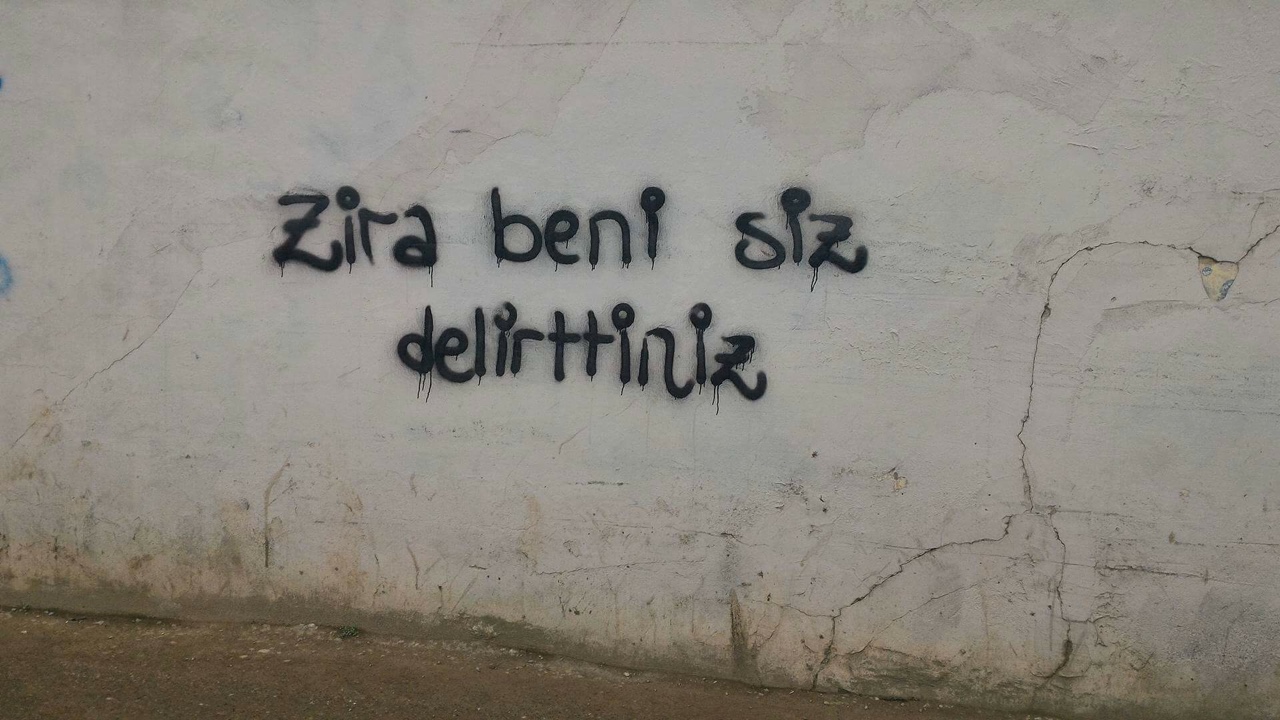 Zira beni siz
delirttiniz